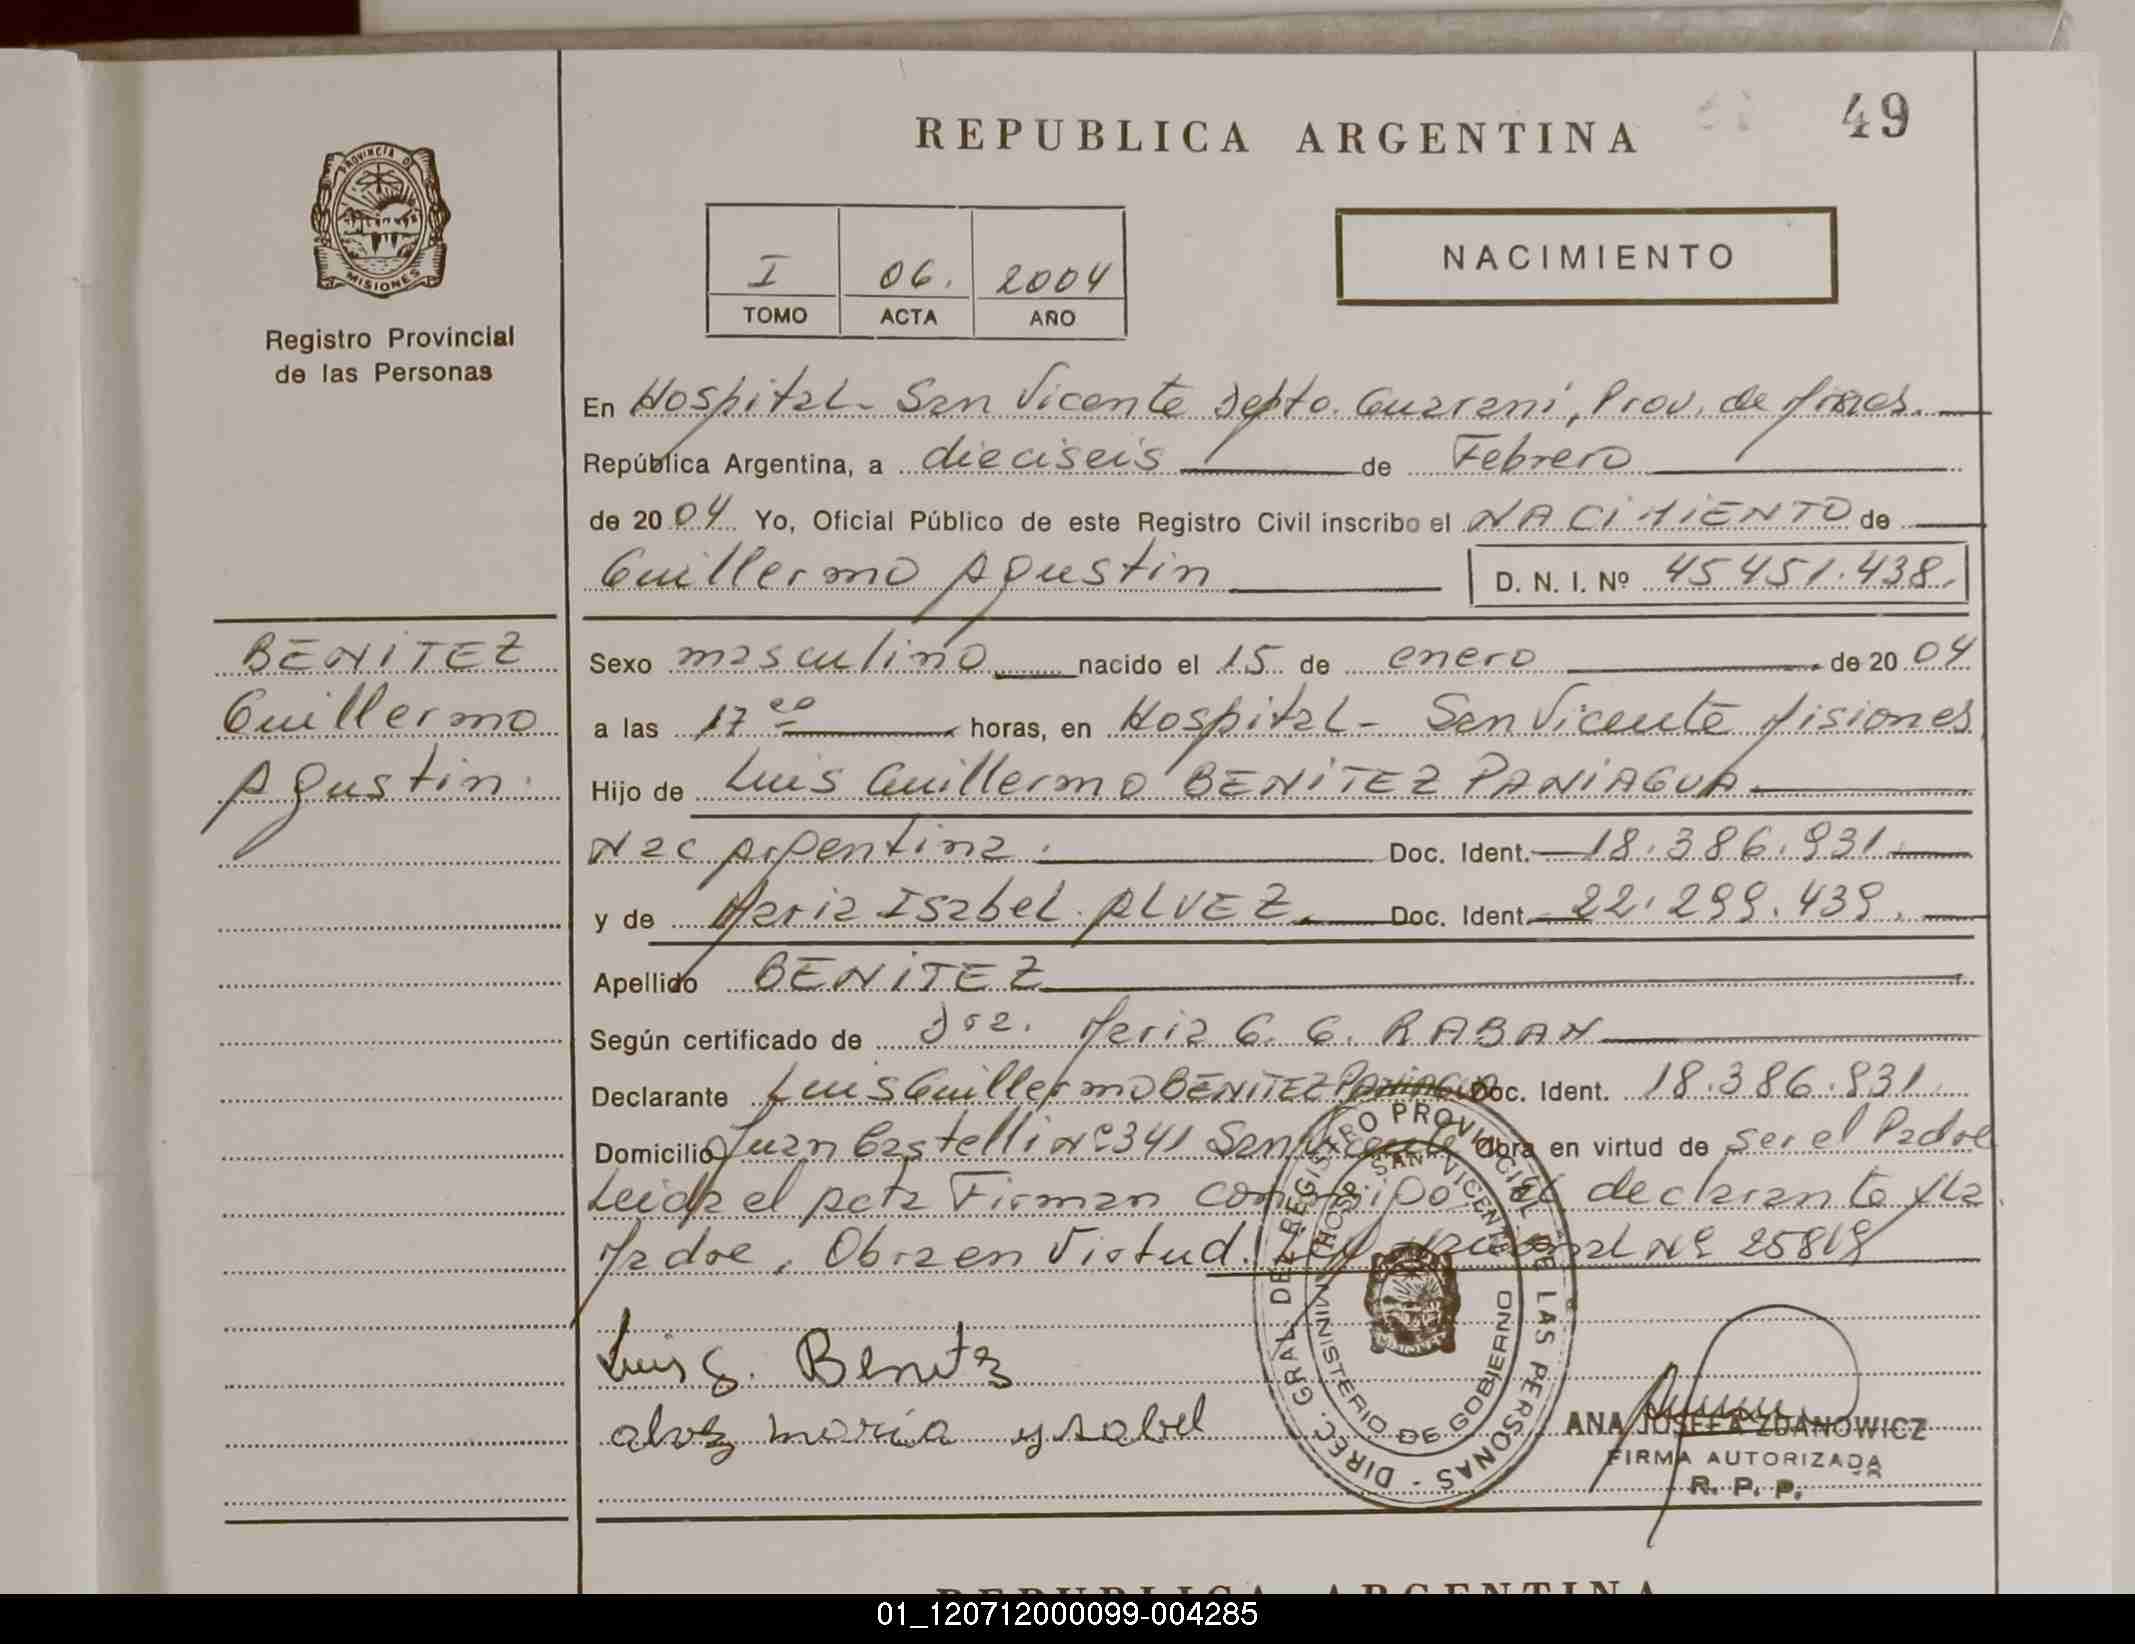 49
REPUBLICA ARGENTINA
PROVINCIA DE
MISIONES
Registro Provincial
de las Personas
I 06. 2004
TOMO ACTA AÑO
NACIMIENTO
En Hospital - San Vicente Depto. Guarani, Prov. de Mnes.
República Argentina, a dieciseis de Febrero
de 2004 Yo, Oficial Público de este Registro Civil inscribo el NACIMIENTO de
Guillermo Agustin D. N. I. Nº 45451.438.
BENITEZ
Guillermo
Agustin.
Sexo masculino nacido el 15 de enero de 2004
a las 17 00 horas, en Hospital - San Vicente Misiones
Hijo de Luis Guillermo BENITEZ PANIAGUA
Nac Argentina. Doc. Ident. 18.386.931.
y de Maria Isabel ALVEZ. Doc. Ident. 22.299.439.
Apellido BENITEZ
Según certificado de Dra. Maria G. G. RABAN
Declarante Luis Guillermo BENITEZ PANIAGUA Doc. Ident. 18.386.931
Domicilio Juan Castelli Nº 341 San Vicente Obra en virtud de ser el Padre
Leida el acta Firman conmigo El declarante y la
Madre, Obra en Virtud. Nº 25819
Luis G. Benitz
alvez maria ysabel
DIREC. GRAL. DEL REGISTRO PROVINCIAL DE LAS PERSONAS -
HOSP. SAN VICENTE
MINISTERIO DE GOBIERNO
ANA JOSEFA ZDANOWICZ
FIRMA AUTORIZADA
R. P. P.
REPUBLICA ARGENTINA
01_120712000099-004285